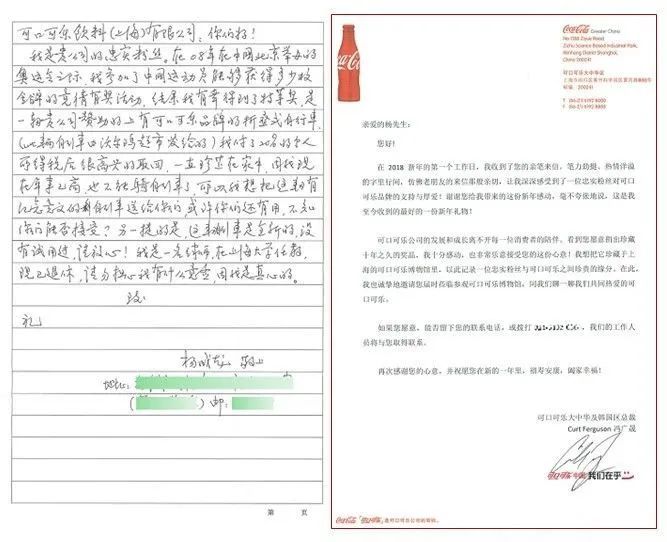 可口可乐饮料(上海)有限公司:你们好!
我是贵公司的忠实粉丝。在08年在中国北京举办的
奥运会之际,我参加了中国运动员能够获得多少枚
金牌的竞猜有奖活动,结果我有幸得到了特等奖,是
一辆贵公司赞助的上有可口可乐品牌的折叠式自行车,
(此辆自行车由沃尔玛超市发给的)我付了20%的个人
所得税后很高兴的取回,一直珍藏在家中,因我现
在年事已高,也不能骑自行车了,可以我想把这辆有
纪念意义的自行车送给你们,或许你们还有用,不知
你们能否接受?另一提的是,这车辆车是全新的,没
有试用过,请放心!我是一名律师,在上海大学任教,
现已退休,请勿担心我有什么意图,因我是真心的。
致
礼
杨成龙 敬上
地址:
( ) 邮:
第 页
Coca-Cola Greater China
No 1188 Ziyue Road,
Zizhu Science Based Industrial Park,
Minhang District Shanghai,
China 200241
可口可乐大中华区
上海市闵行区紫竹科学园区紫月路1188号
邮编:200241
T (86-21) 6192 8000
F (86-21) 6192 8888
亲爱的杨先生:
您好!
在 2018 新年的第一个工作日,我收到了您的亲笔来信,笔力劲挺、热情洋溢
的字里行间,仿佛老朋友的来信那般亲切,让我深深感受到了一位忠实粉丝对可口
可乐品牌的支持与厚爱!谢谢您给我带来的这份新年感动,毫不夸张地说,这是我
至今收到的最好的一份新年礼物!
可口可乐公司的发展和成长离不开每一位消费者的陪伴。看到您愿意捐出珍藏
十年之久的奖品,我十分感动,也非常乐意接受您的这份心意!我想把它珍藏于上
海的可口可乐博物馆里,以此记录一位忠实粉丝与可口可乐之间珍贵的缘分。在此,
我也诚挚地邀请您届时莅临参观可口可乐博物馆,同我们聊一聊我们共同热爱的可
口可乐。
如果您愿意,能否留下您的联系电话,或拨打 ,我们的工作人
员将与您取得联系。
再次感谢您的心意,并祝愿您在新的一年里,福寿安康,阖家幸福!
可口可乐大中华及韩国区总裁
Curt Ferguson 冯广晟
Coca-Cola 中国 我们在乎
Coca-Cola "可口可乐" 是可口可乐公司的商标。